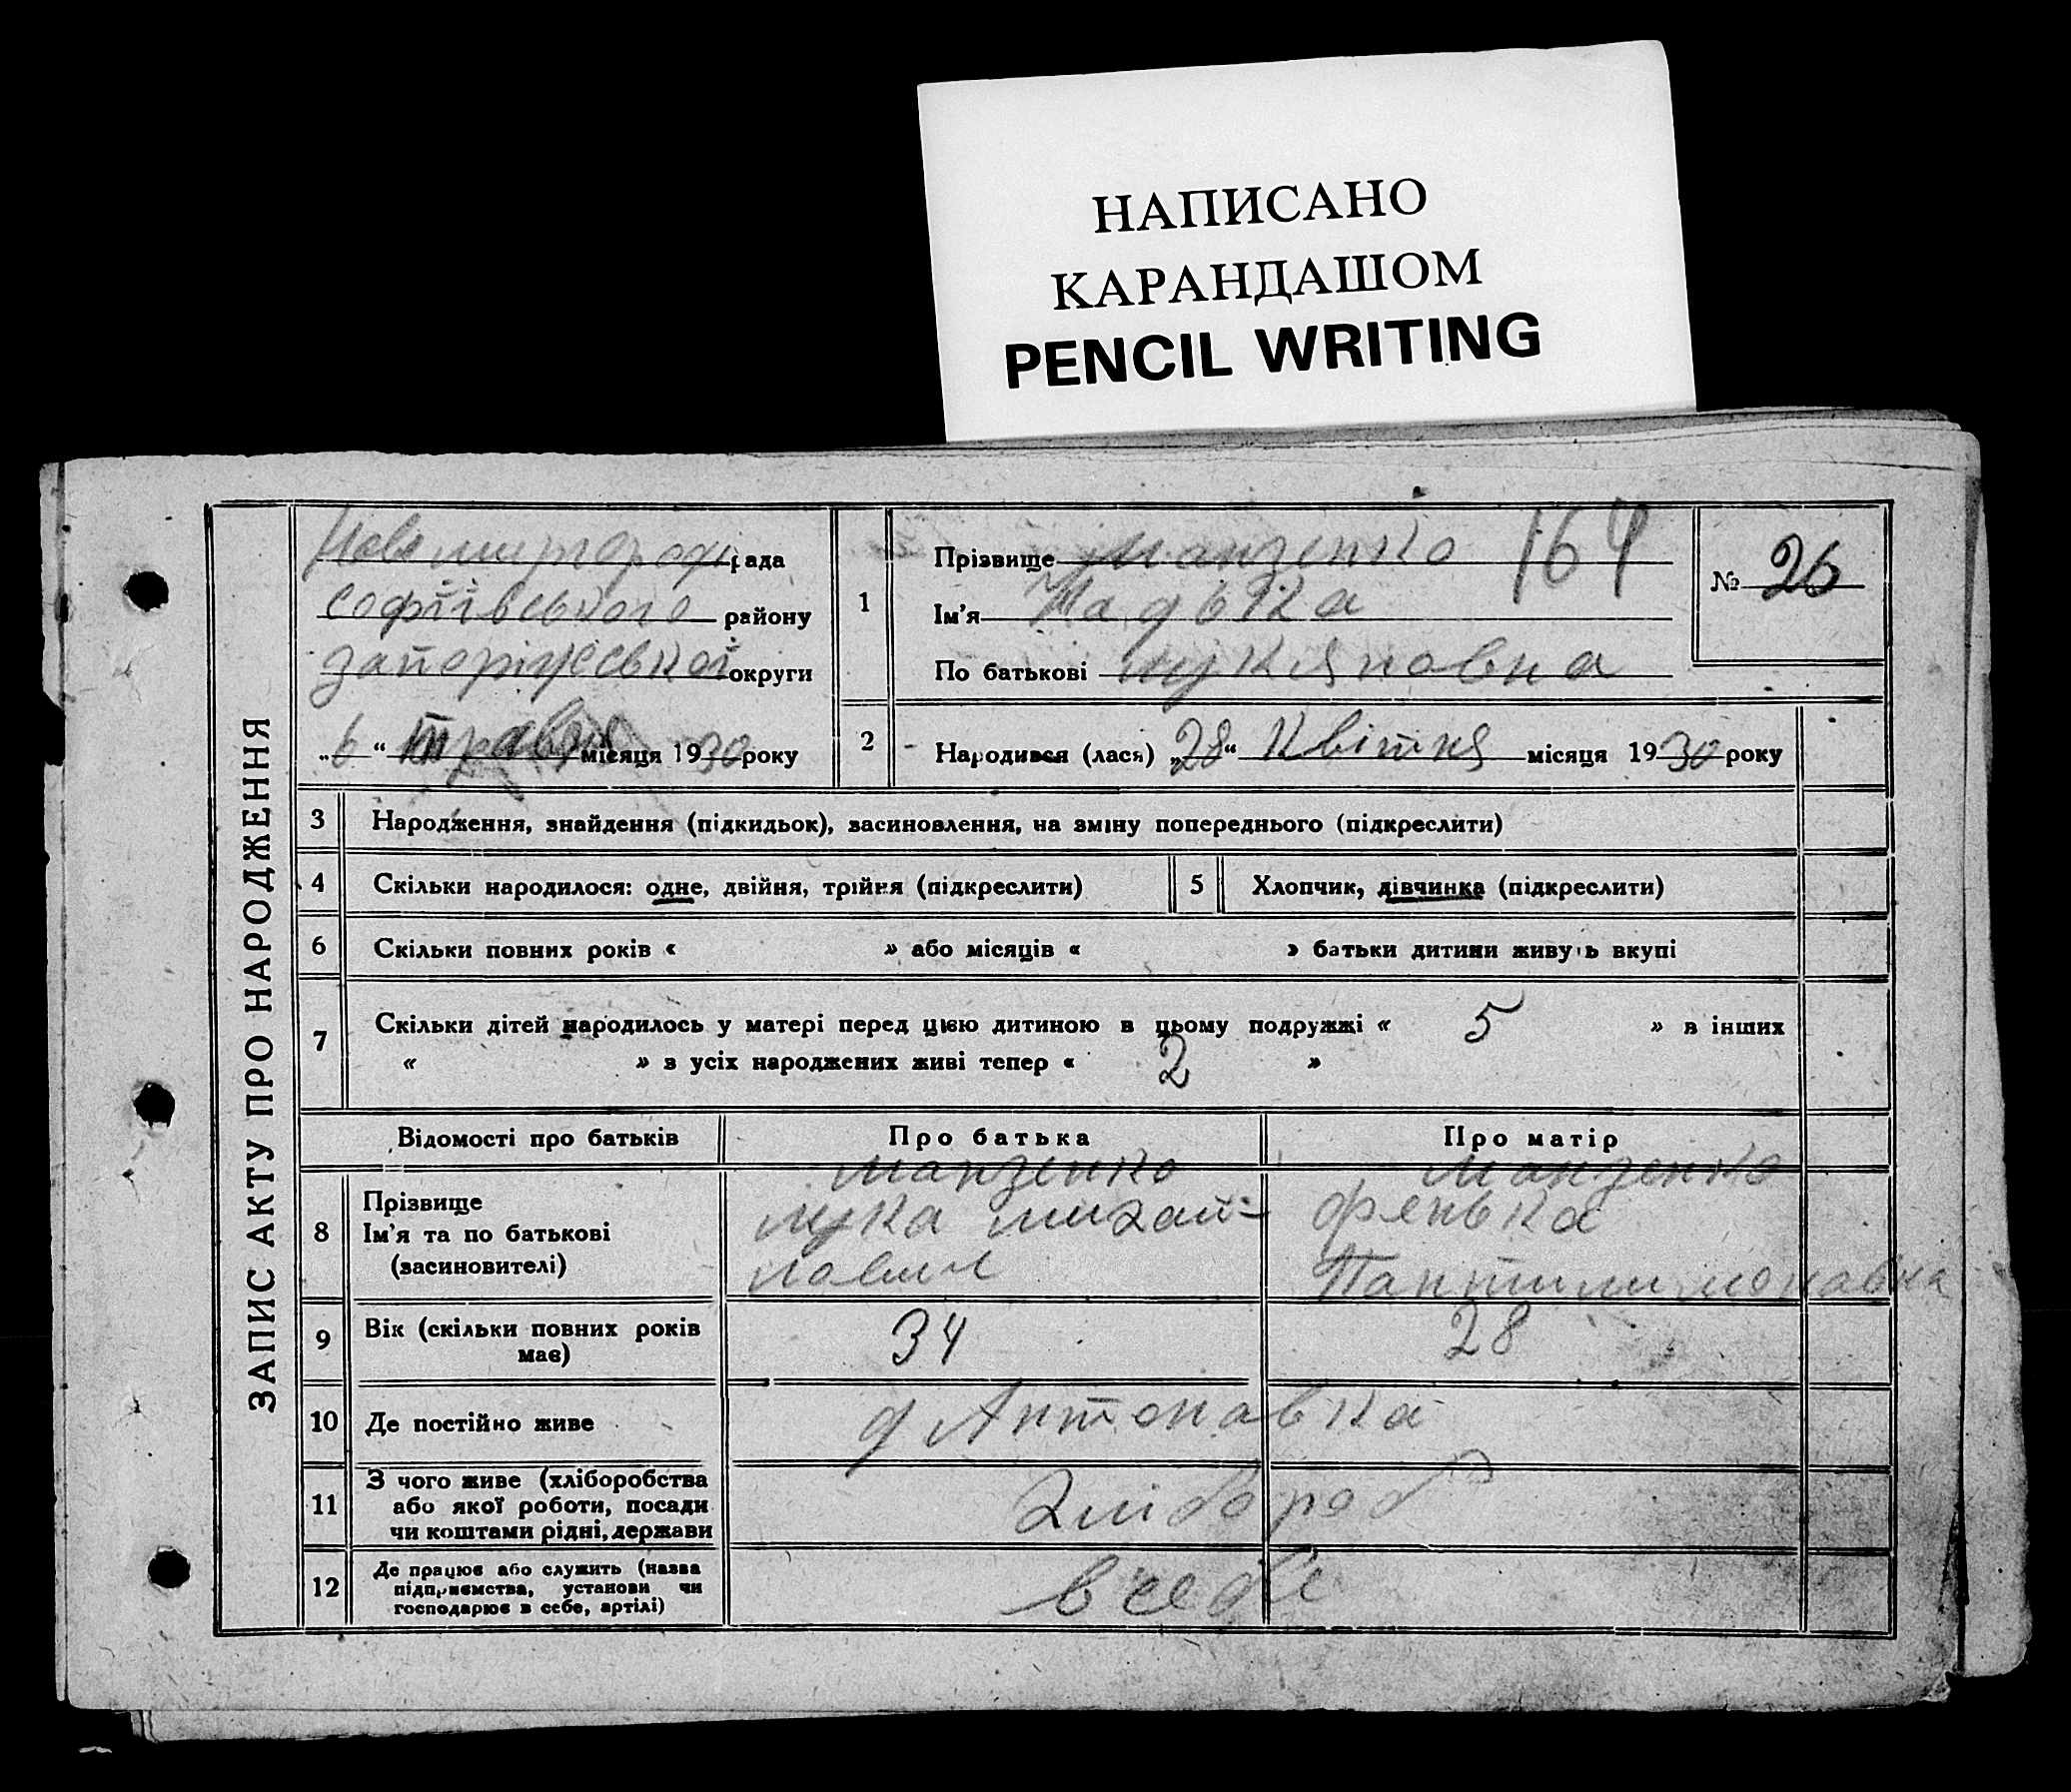 НАПИСАНО
КАРАНДАШОМ
PENCIL WRITING
ЗАПИС АКТУ ПРО НАРОДЖЕННЯ
рада
Софіївського району
запоріжської округи
„6“ травня місяця 1930 року
1
Прізвище 164
Ім'я Надька
По батькові лукяновна
№ 26
2 Народився (лася) „28“ Квітня місяця 1930 року
3 Народження, знайдення (підкидьок), засиновлення, на зміну попереднього (підкреслити)
4 Скільки народилося: одне, двійня, трійня (підкреслити)
5 Хлопчик, дівчинка (підкреслити)
6 Скільки повних років « » або місяців « » батьки дитини живуть вкупі
7 Скільки дітей народилось у матері перед цією дитиною в цьому подружжі « 5 » в інших
« » з усіх народжених живі тепер « 2 »
Відомості про батьків Про батька Про матір
8 Прізвище
Ім'я та по батькові
(засиновителі)
лука михай=
лович
фенька
Пантилимонавна
9 Вік (скільки повних років має) 34 28
10 Де постійно живе д Антонавка
11 З чого живе (хліборобства
або якої роботи, посади
чи коштами рідні, держави
хлібороб
12 Де працює або служить (назва
підприємства, установи чи
господарює в себе, артілі)
в себе